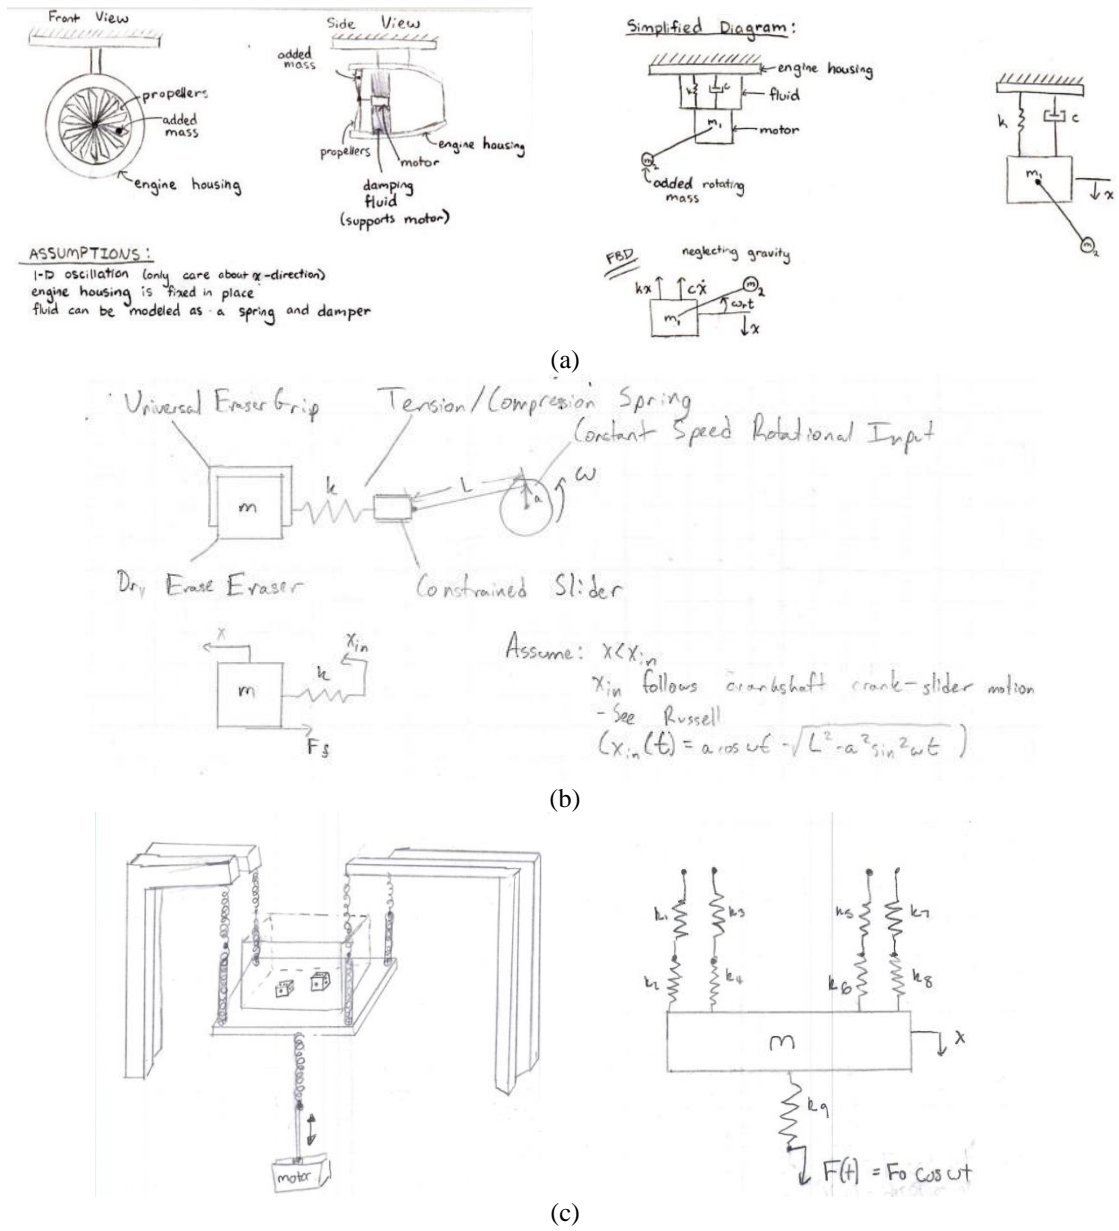 Front View
propellers
added
mass
engine housing
Side View
added
mass
propellers
motor
engine housing
damping
fluid
(supports motor)
ASSUMPTIONS:
1-D oscillation (only care about x-direction)
engine housing is fixed in place
fluid can be modeled as a spring and damper
Simplified Diagram:
engine housing
k
c
fluid
m₁
motor
m₂
added rotating
mass
k
c
m₁
x
m₂
FBD
neglecting gravity
kx
cẋ
m₂
ωrt
m₁
x
(a)
Universal Eraser Grip
Tension/Compression Spring
Constant Speed Rotational Input
k
L
ω
a
m
Dry Erase Eraser
Constrained Slider
x
xin
k
m
Assume: x<xin
xin follows crankshaft crank-slider motion
- See Russell
(xin(t) = a cos ωt - √L²-a²sin²ωt )
(b)
motor
k1
k3
k5
k7
k2
k4
k6
k8
m
x
k9
F(t) = F0 cos ωt
(c)